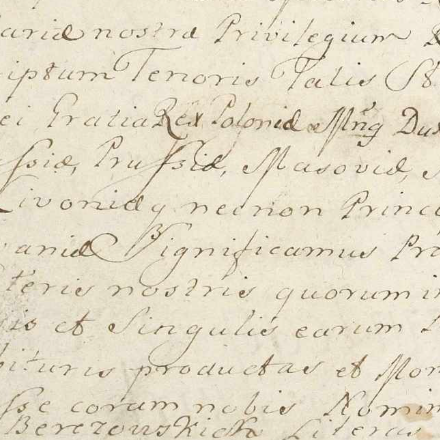 ariæ nostræ Privilegium
iptum Tenoris Talis St
ei Gratia Rex Poloniæ Mag Dux
ssiæ, Prussiæ, Masoviæ,
Livoniæq necnon Princ
aniæ Significamus Pr
teris nostris quorum in
is et Singulis earum
bituris productas et Mo
sse coram nobis Nomin
Berezowskich Literas